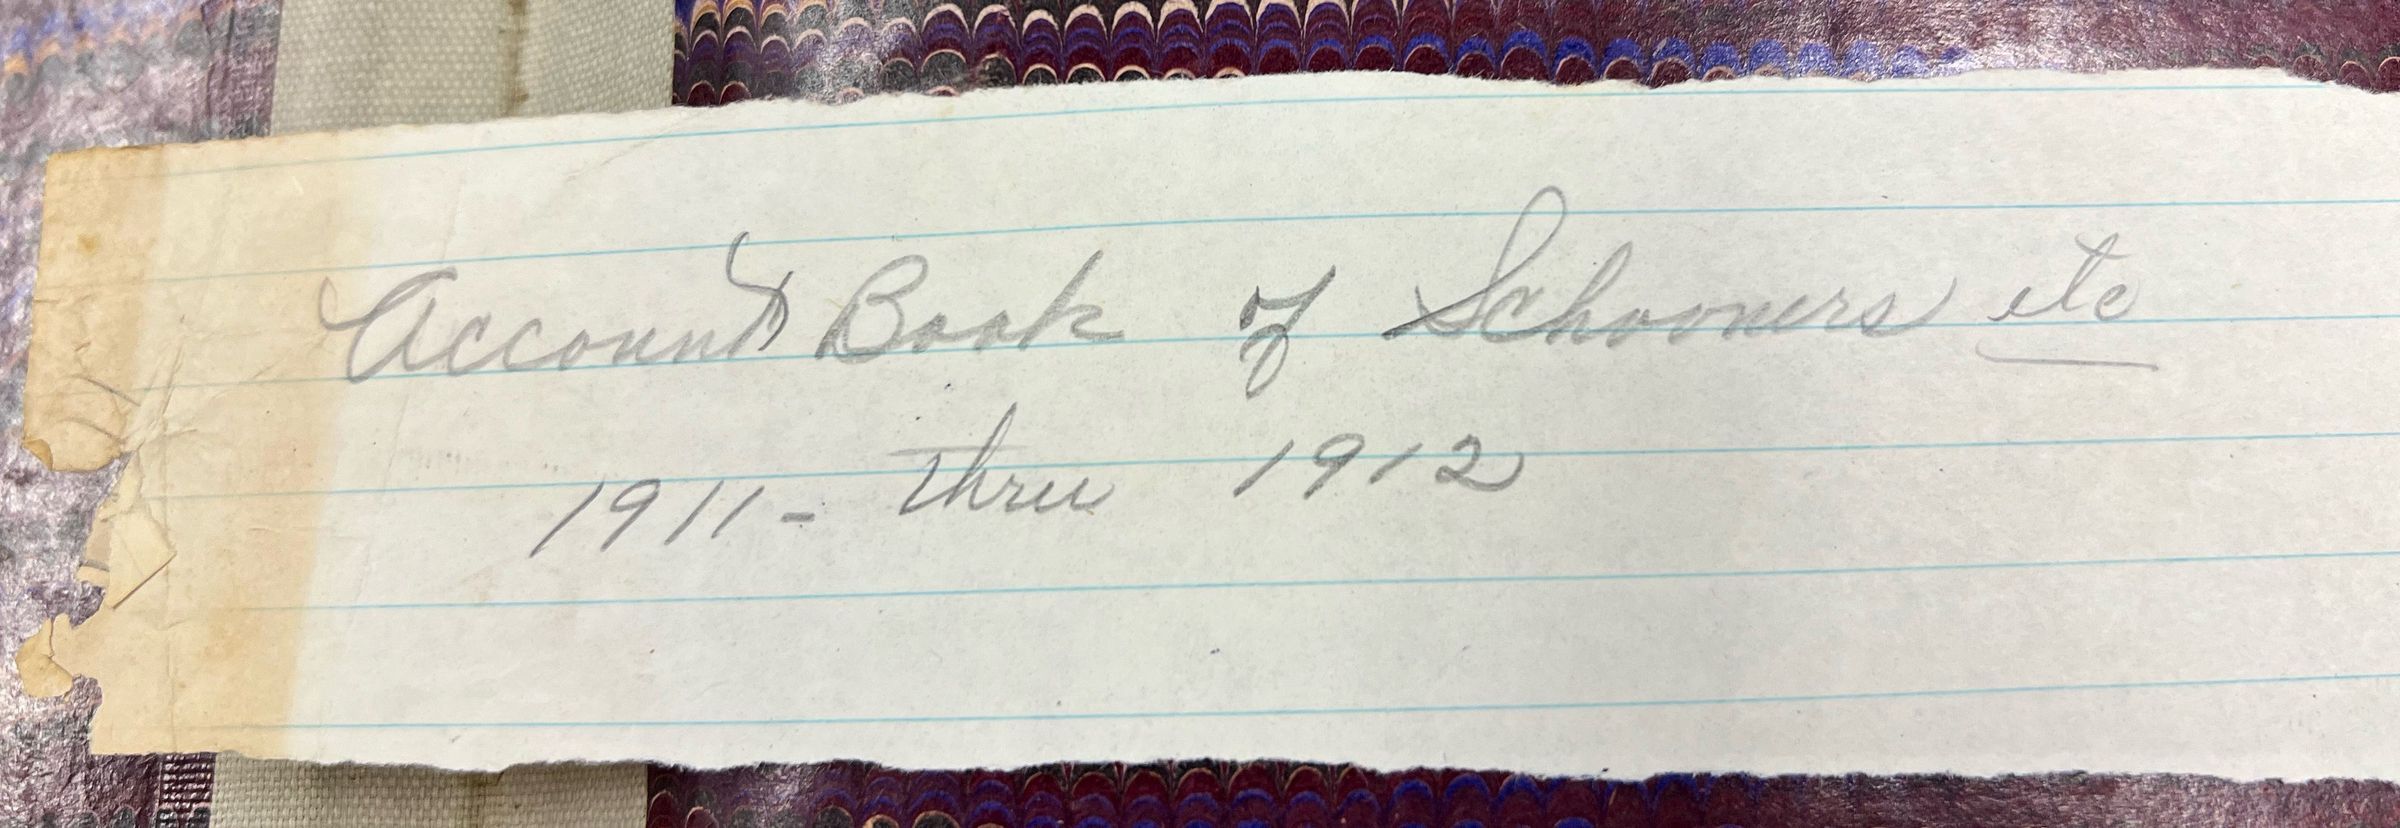 Account Book of Schooners etc
1911 - thru 1912